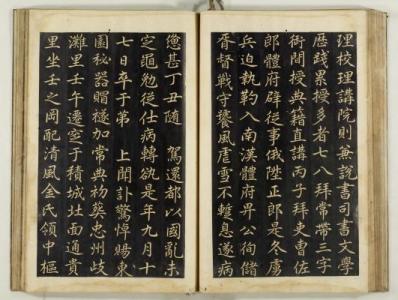 理校理講院則兼說書司書文學
歷踐累授多者七八拜常帶三字
銜間授典籍直講丙子拜吏曹佐
郎體府辟從事俄陞正郎是冬虜
兵迫執靮入南漢體府昇公徇儲
胥督戰守襲風虐雪不蹔息遂病
憊甚丁丑随 駕還都以國亂未
定黽勉從仕病轉欲是年九月十
七日卒于第 上聞訃驚悼賜東
園秘器賵襚加常典初葬忠州岐
灘里壬午遷窆于積城壯面通貴
里坐壬之岡配清風金氏領中樞